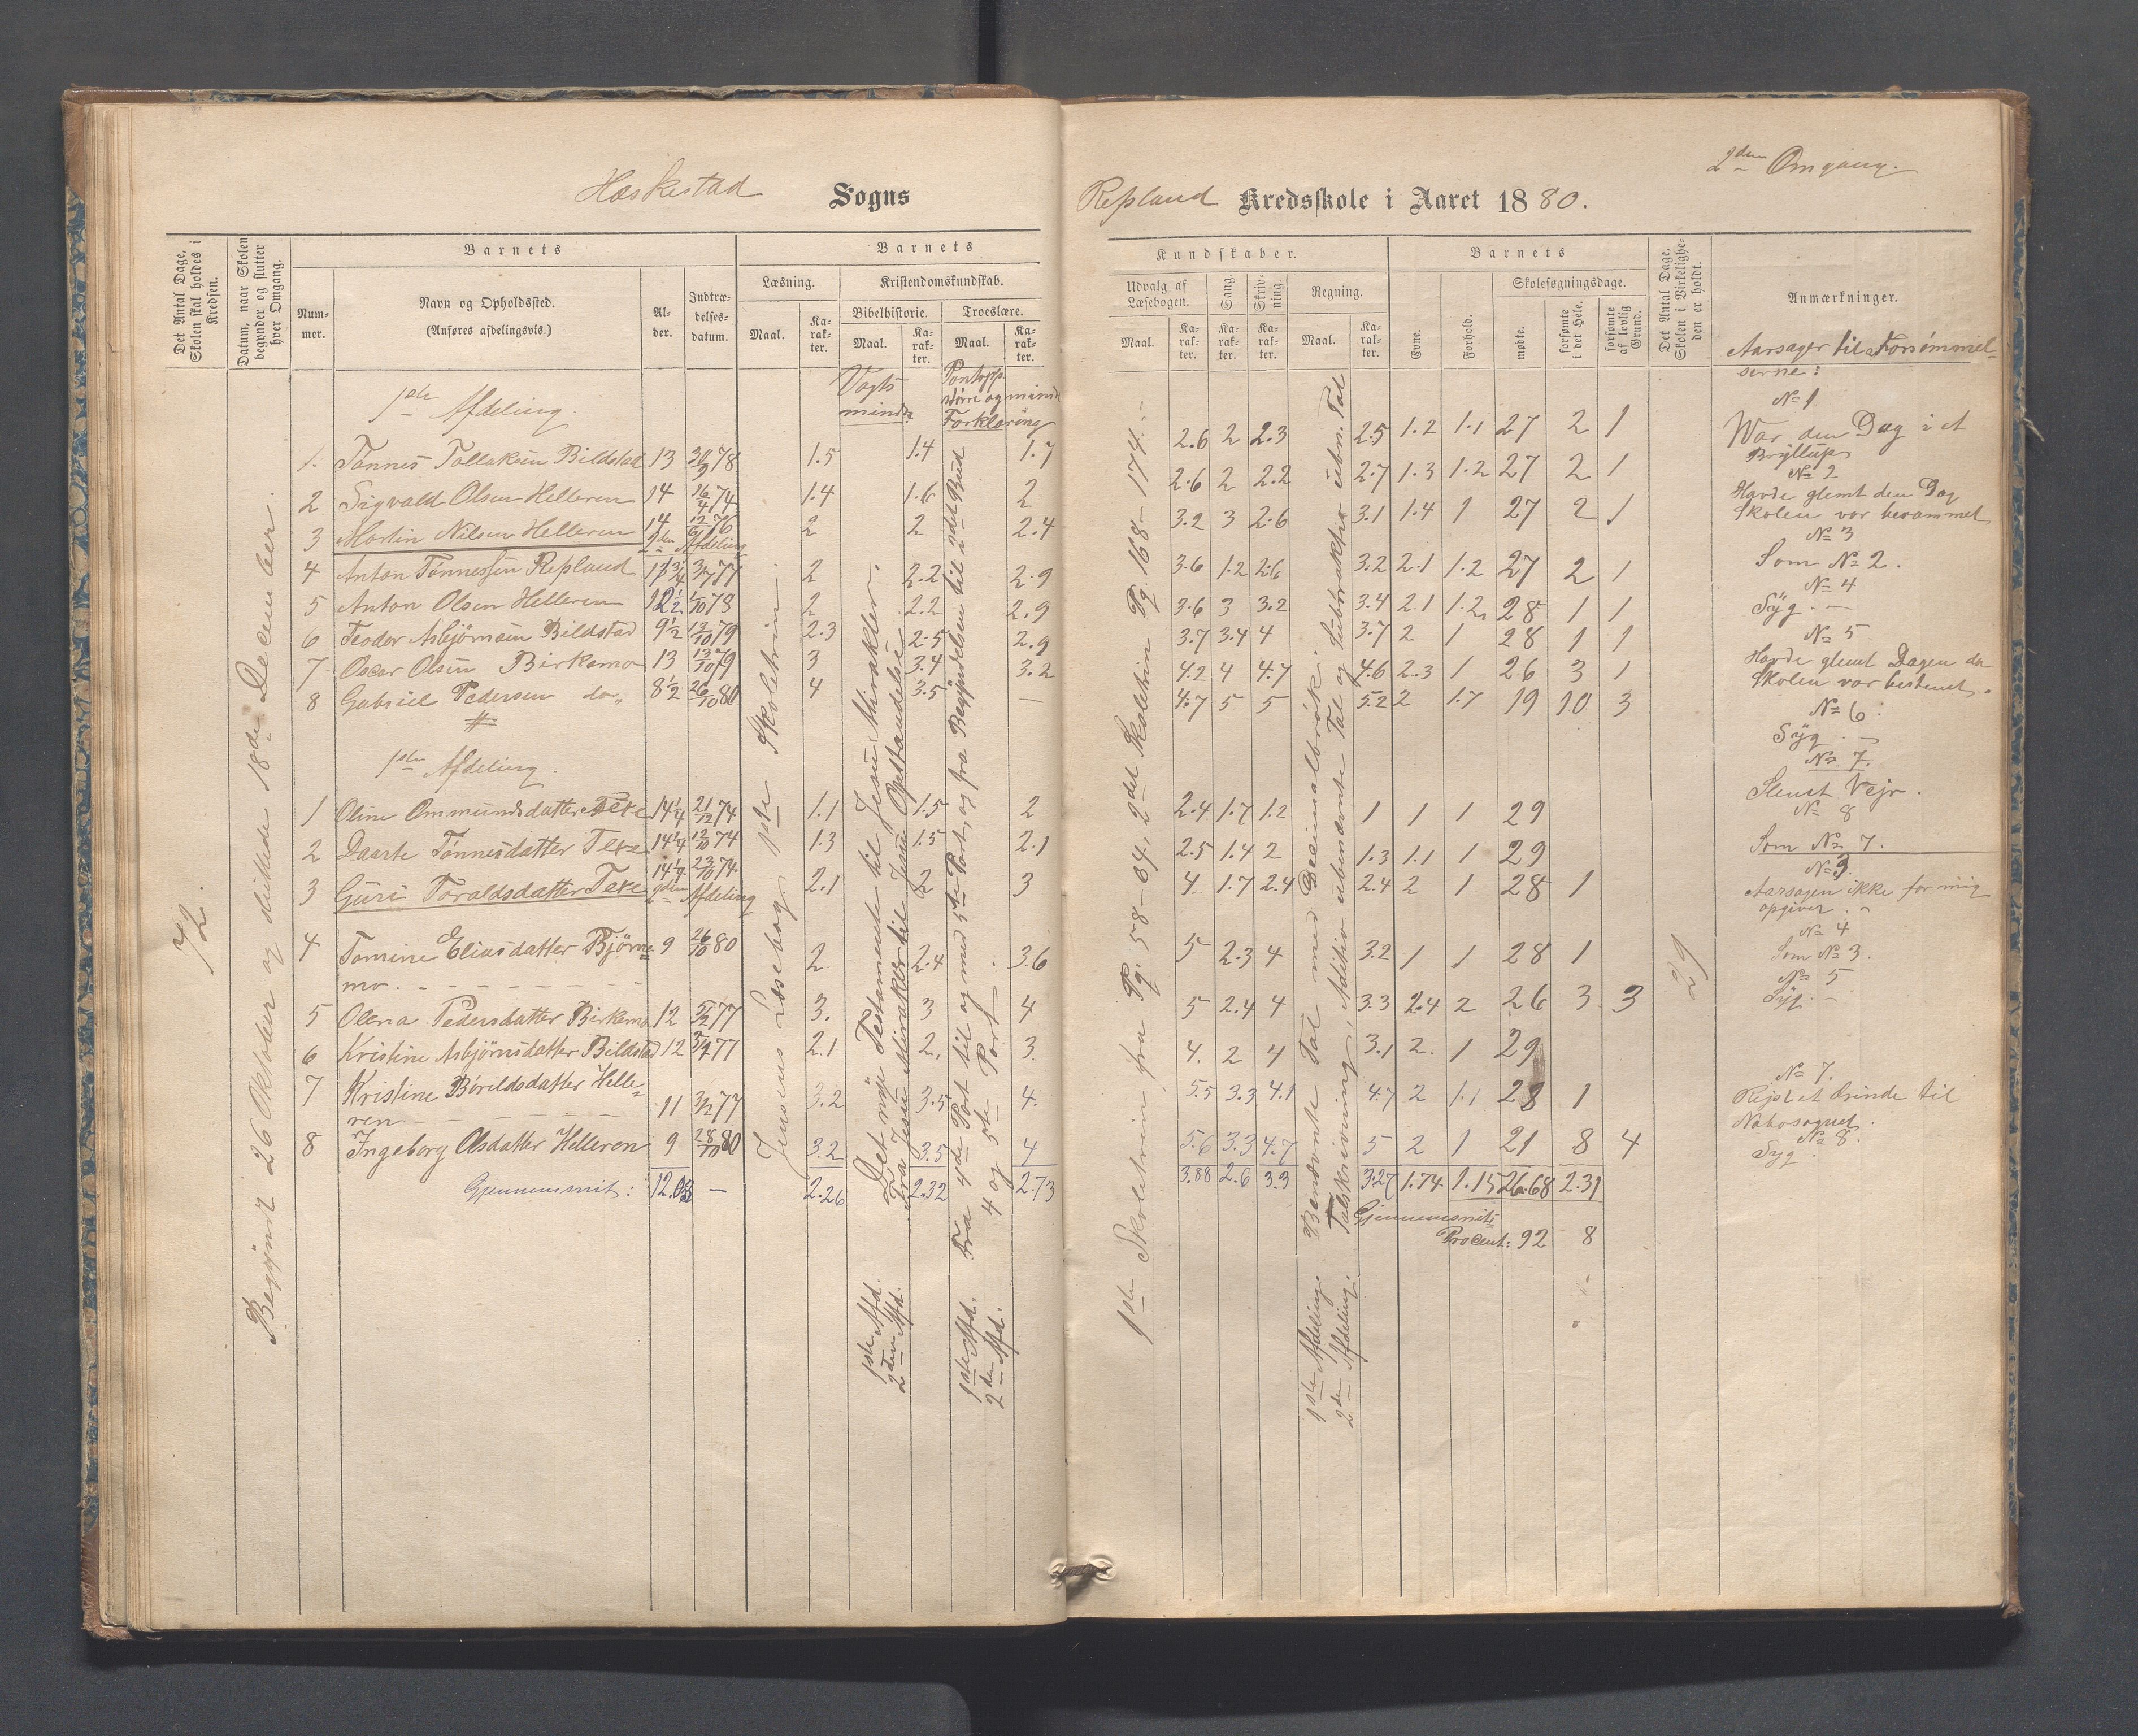 Hæskestad Sogns
Repsland Kredsskole i Aaret 1880.
2den Omgang.
Det Antal Dage, Skolen skal holdes i Kredsen.
Datum, naar Skolen begynder og slutter hver Omgang.
Barnets
Nummer.
Navn og Opholdssted.
(Anføres afdelingsvis.)
Alder.
Indtrædelsesdatum.
Barnets
Læsning.
Maal.
Karakter.
Kristendomskundskab.
Bibelhistorie.
Maal.
Karakter.
Troeslære.
Maal.
Karakter.
Kundskaber.
Udvalg af Læsebogen.
Maal.
Karakter.
Sang.
Karakter.
Skrivning.
Karakter.
Regning.
Maal.
Karakter.
Barnets
Evne.
Forhold.
Skolesøgningsdage.
mødte.
forsømte i det Hele.
forsømte af lovlig Grund.
Det Antal Dage, Skolen i Virkeligheden er holdt.
Anmærkninger.
72.
Begyndt 26 Oktober og sluttede 18de December.
Jensens Læsebog 1ste Skoletrin.
Vogts mindre
Pontopp. større og mindre Forklaring
1ste Afd. Det nye Testamente til Jesu Mirakler.
2den Afd. Fra Jesu Mirakler til Jesu Opstandelse
1ste Afd. Fra 4de Part til og med 5te Part, og fra Begyndelsen til 2det Bud
2den Afd. 4 og 5te Part.
1ste Skoletrin fra Pg. 58-64, 2det Skoletrin Pg. 168-174.
1ste Afdeling. Benævnte Tal med Decimalbrøk.
2den Afdeling. Talskrivning, Aditio ubenævnte Tal og Subtraktio ubn. Tal
29
1ste Afdeling.
1. Tønnes Tollaksen Bildstad 13 30/9 78 1.5 1.4 1.7 2.6 2 2.3 2.5 1.2 1.1 27 2 1
2 Sigvald Olsen Helleren 14 16/4 74 1.4 1.6 2 2.6 2 2.2 2.7 1.3 1.2 27 2 1
3 Martin Nilsen Helleren 14 12/6 76 2 2 2.4 3.2 3 2.6 3.1 1.4 1 27 2 1
2den Afdeling
4 Anton Tønnessen Repsland 11 3/4 3/7 77 2 2.2 2.9 3.6 1.2 2.6 3.2 2.1 1.2 27 2 1
5 Anton Olsen Helleren 12 1/2 1/10 78 2 2.2 2.9 3.6 3 3.2 3.4 2.1 1.2 28 1 1
6 Teodor Asbjørnsen Bildstad 9 1/2 13/10 79 2.3 2.5 2.9 3.7 3.4 4 3.7 2 1 28 1 1
7 Oscar Olsen Birkemo 13 13/10 79 3 3.4 3.2 4.2 4 4.7 4.6 2.3 1 26 3 1
8 Gabriel Pedersen do. 8 1/2 26/10 80 4 3.5 — 4.7 5 5 5.2 2 1.7 19 10 3
1ste Afdeling.
1 Oline Ommundsdatter Teke 14 1/4 21/12 74 1.1 1.5 2 2.4 1.7 1.2 1 1 1 29
2 Daarte Tønnesdatter Teke 14 1/4 12/10 74 1.3 1.5 2.1 2.5 1.4 2 1.3 1.1 1 29
3 Guri Toraldsdatter Teke 14 1/4 23/10 74 2.1 2 3 4. 1.7 2.4 2.4 2 1 28 1
2den Afdeling
4 Tomine Eliasdatter Bjørnemo 9 26/10 80 2. 2.4 3.6 5 2.3 4 3.2 1 1 28 1
5 Olena Pedersdatter Birkemo 12 5/2 77 3. 3 4 5 2.4 4 3.3 2.4 2 26 3 3
6 Kristine Asbjørnsdatter Bildstad 12 3/7 77 2.1 2. 3. 4. 2 4 3.1 2. 1 29
7 Kristine Børildsdatter Helleren 11 3/7 77 3.2 3.5 4. 5.5 3.3 4.1 4.7 2 1.1 28 1
8 Ingeborg Olsdatter Helleren 9 28/10 80 3.2 3.5 4 5.6 3.3 4.7 5 2 1 21 8 4
Gjennemsnit: 12.03 — 2.26 2.32 2.73 3.88 2.6 3.9 3.27 1.74 1.15 26.68 2.31
Gjennemsnits Procent: 92 8
Aarsager til Forsømmelserne:
No 1
War den Dag i et Bryllup
No 2
Havde glemt den Dag Skolen var berammet
No 3
Som No 2.
No 4
Syg.
No 5
Havde glemt Dagen da Skolen var bestemt.
No 6.
Syg.
No 7.
Slemt Vejr.
No 8
Som No 7.
No 3.
Aarsagen ikke for mig opgiven.
No 4
Som No 3.
No 5
Syg.
No 7.
Rejst et Ærinde til Nabosognet.
No 8.
Syg.